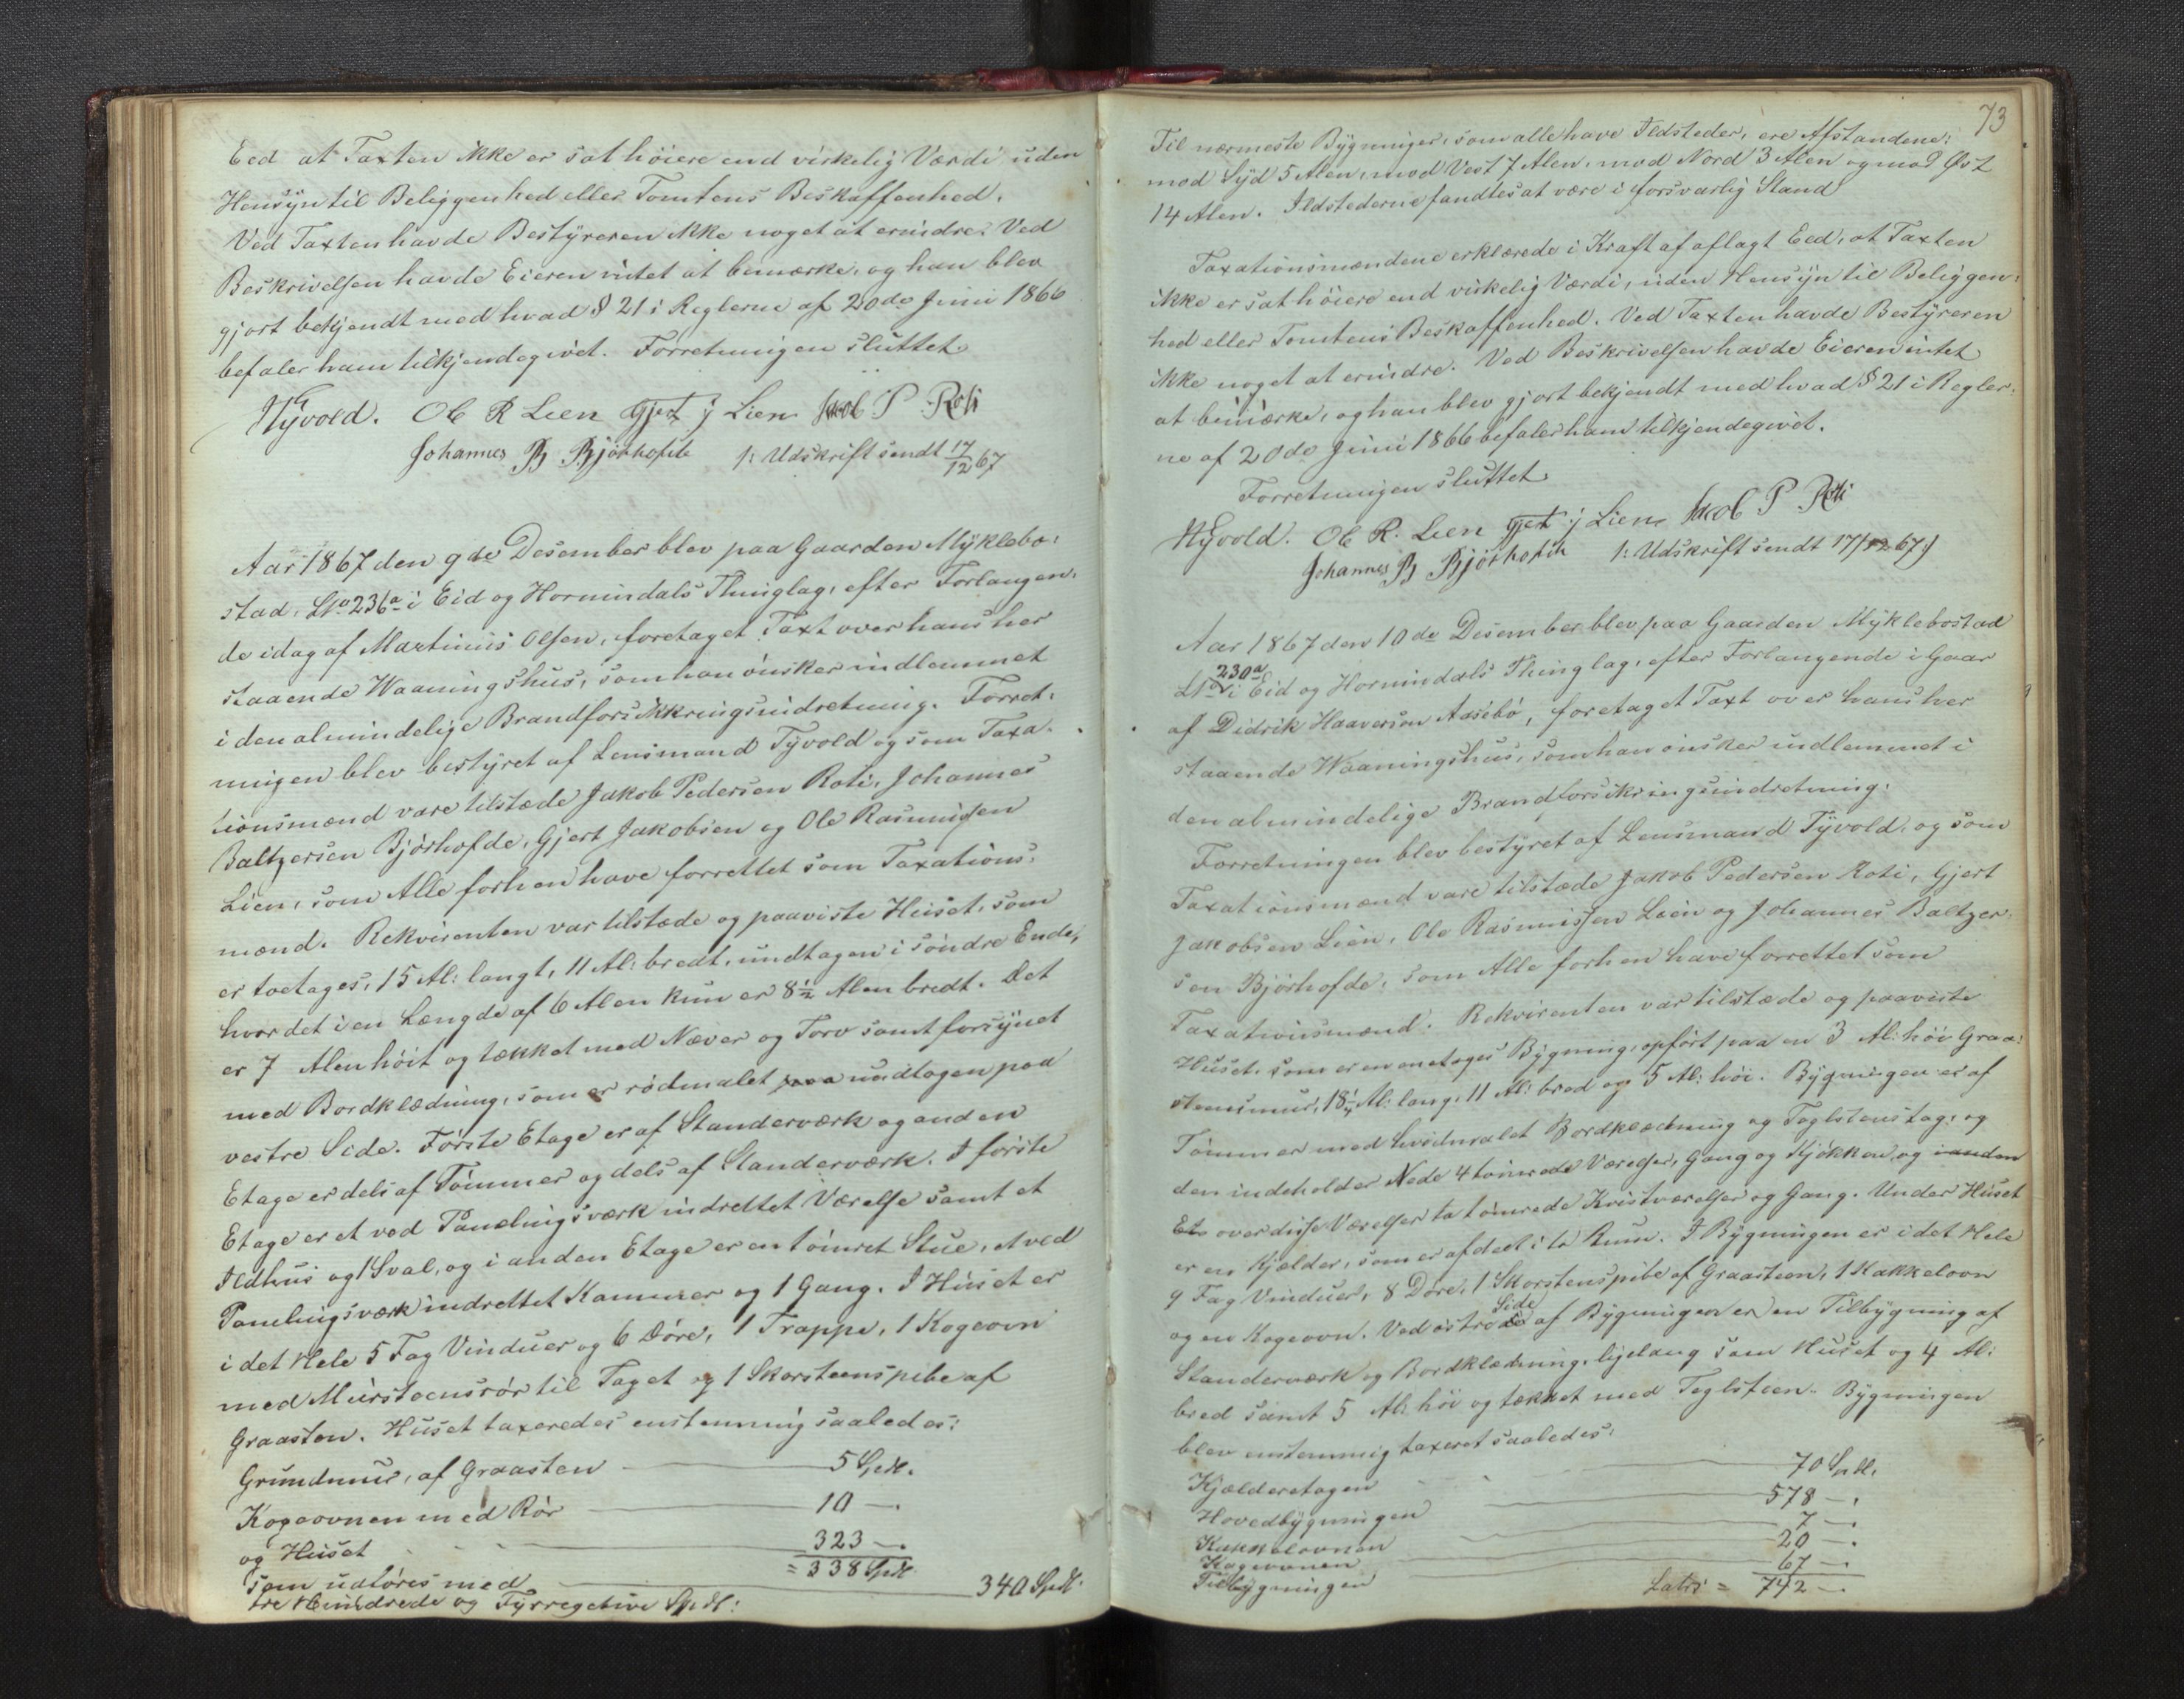 Eed at Taxten ikke er sat høiere end virkelig Værdi uden
Hensyn til Beliggenhed eller Tomtens Beskaffenhed.
Ved Taxten havde Bestyreren ikke noget at erindre. Ved
Beskrivelsen havde Eieren intet at bemærke, og han blev
gjort bekjendt med hvad § 21 i Reglerne af 20de Juni 1866
befaler ham tilkjendegivet. Forretningen sluttet
Tyvold. Ole R Lien Gjert J Lien Jacob P Roti
Johannes B Bjørhofde /: Udskrift sendt 17/12 67
Aar 1867 den 9de Desember blev paa Gaarden Myklebo:
stad, LNo 236a i Eid og Hornindals Thinglag, efter Forlangen:
de idag af Martinus Olsen, foretaget Taxt over hans her
staaende Waaningshus, som han ønsker indlemmet
i den almindelige Brandforsikkringsindretning. Forret:
ningen blev bestyret af Lensmand Tyvold og som Taxa:
tionsmænd vare tilstæde Jakob Pedersen Roti, Johannes
Baltzersen Bjørhofde, Gjert Jakobsen og Ole Rasmussen
Lien, som Alle forhen have forrettet som Taxations:
mænd. Rekvirenten var tilstæde og paaviste Huset, som
er toetages, 15 Al: langt, 11 Al: bredt, undtagen i søndre Ende,
hvor det i en Længde af 6 Alen kun er 8½ Alen bredt. Det
er 7 Alen høit og tækket med Næver og Torv samt forsynet
med Bordklædning, som er rødmalet paa undtagen paa
vestre Side. Første Etage er af Standerværk og anden
Etage er dels af Tømmer og dels af Standerværk. I første
Etage er et ved Panelingsværk indrettet Værelse samt et
Ildhus og 1 Sval, og i anden Etage er en tømret Stue, et ved
Panelingsværk indrettet Kammer og 1 Gang. I Huset er
i det Hele 5 Fag Vinduer og 6 Døre, 1 Trappe, 1 Kogeovn
med Murstensrør til Taget og 1 Skorstenspibe af
Graasten. Huset taxeredes enstemmig saaledes:
Grundmur, af Graasten 5 Spdl.
Kogeovnen med Rør 10 —.
og Huset 323 —.
= 338 Spdl.
som udføres med 340 Spdl.
tre Hundrede og Fyrregetive Spdl:
73
Til nærmeste Bygninger, som alle have Ildsteder, ere Afstandene:
mod Syd 5 Alen, mod Vest 7 Alen, mod Nord 3 Alen og mod Øst
14 Alen. Ildstederne fandtes at være i forsvarlig Stand
Taxationsmændene erklærede i Kraft af aflagt Eed, at Taxten
ikke er sat høiere end virkelig Værdi, uden Hensyn til Beliggen:
hed eller Tomtens Beskaffenhed. Ved Taxten havde Bestyreren
ikke noget at erindre. Ved Beskrivelsen havde Eieren intet
at bemærke, og han blev gjort bekjendt med hvad § 21 i Regler:
ne af 20de Juni 1866 befaler ham tilkjendegivet.
Forretningen sluttet
Tyvold. Ole R. Lien Gjert J Lien Jacob P Roti
Johannes B Bjørhofde /: Udskrift sendt 17/12 67 :/
Aar 1867 den 10de Desember blev paa Gaarden Myklebostad
LNo 230a i Eid og Hornindals Thinglag, efter Forlangende i Gaar
af Didrik Haaversen Aasebø, foretaget Taxt over hans her
staaende Waaningshus, som han ønsker indlemmet i
den almindelige Brandforsikringsindretning.
Forretningen blev bestyret af Lensmand Tyvold, og som
Taxationsmænd vare tilstæde Jakob Pedersen Roti, Gjert
Jakobsen Lien, Ole Rasmussen Lien og Johannes Baltzer:
sen Bjørhofde, som Alle forhen have forrettet som
Taxationsmænd. Rekvirenten var tilstæde og paaviste
Huset, som er en enetages Bygning, opført paa en 3 Al: høi Graa:
stensmur, 18¼ Al: lang, 11 Al: bred og 5 Al: høi. Bygningen er af
Tømmer med hvidmalet Bordklædning og Teglstenstag; og
den indeholder Nede 4 tømrede Værelser, Gang og Kjøkken, og i anden
Et over disse Værelser to tømrede Kvistværelser og Gang. Under Huset
er en Kjelder, som er afdelt i to Rum. I Bygningen er i det Hele
9 Fag Vinduer, 8 Døre, 1 Skorstenspibe af Graasteen, 1 Kakkelovn
og en Kogeovn. Ved østre Side af Bygningen er en Tilbygning af
Standerværk og Bordklædning, ligelang som Huset og 4 Al:
bred samt 5 Al: høi og tækket med Teglsteen. Bygningen
blev enstemmig taxeret saaledes:
Kjælderetagen 70 Spdl.
Hovedbygningen 578 —.
Kakkelovnen 7 —.
Kogeovnen 20 —.
Tilbygningen 67 —.
Latris = 742 —.